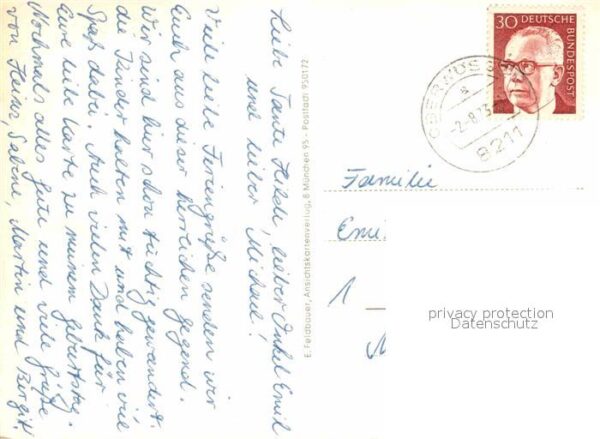 Liebe Tante Hilde, lieber Onkel Emil
und lieber Michael!
Viele liebe Feriengrüße senden wir
Euch aus dieser herrlichen Gegend.
Wir sind hier schon tüchtig gewandert.
die Kinder halten mit und haben viel
Spaß dabei. Auch vielen Dank für
eure liebe Karte zu meinem Geburtstag.
Nochmals alles Gute und viele Grüße
von Heinz, Sabine, Martin und Birgit!
E. Feldbauer, Ansichtskartenverlag, 8 München 95 - Postfach 950172
30 DEUTSCHE
BUNDESPOST
-2.-8.73
8211
Familie
Emil
1
privacy protection
Datenschutz